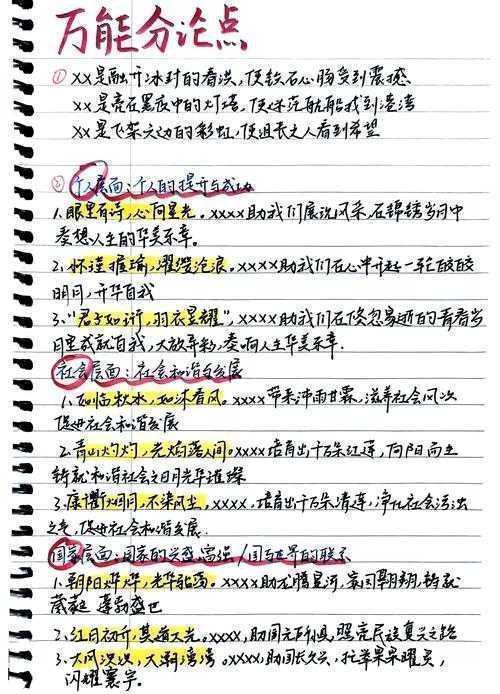 万能分论点
① XX是融开冰封的春洪，使铁石心肠受到震撼、
XX是亮在黑夜中的灯塔，使迷茫航船找到港湾
XX是飞架天边的彩虹，使沮丧之人看到希望
② 个人层面：个人的提升与成功
1. 眼里有诗，心向星光。xxxx助我们展说风采，在锦绣岁月中
奏想人生的华美乐章。
2. 怀瑾握瑜，濯缨沧浪。xxxx助我们在心中升起一轮皎皎
明月，升华自我
3. “君子如珩，羽衣昱耀”，xxxx助我们在倏忽易逝的青春岁
月里成就自我，大放异彩，奏响人生华美乐章．
社会层面：社会和谐与发展
1. 如临秋水，如沐春风。xxxx带来沛雨甘霖，滋养社会风
促进社会和谐发展
2. 青山灼灼，光焰落人间。xxxx培育出千朵红莲，向阳而生
铸就和谐社会之日月光华璀璨
3. 康衢烟月，不染风尘，xxxx，培育出千朵清莲，净化社会污浊
之气，促进社会和谐发展．
国家层面：国家的兴盛富强/国与世界的联系
1. 朝阳烨烨，光华驰荡。xxxx助龙腾星河，家国翱翔，铸就
葳蕤 蓬勃盛世
2. 红日初升，其道大光。xxxx，助国无所惧，照亮民族复兴之路
3. 大风泱泱，大潮滂滂。xxxx，助国长久兴，扛举杲杲曜灵，
闪耀寰宇。